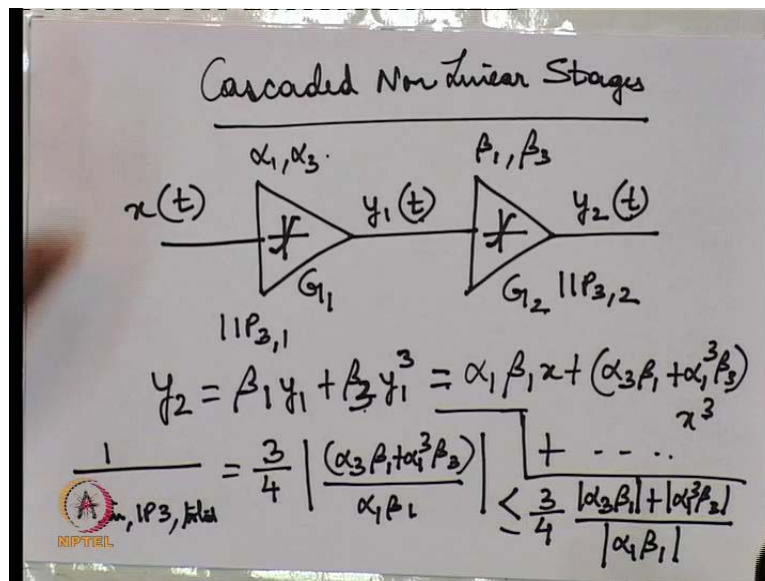 Cascaded Non Linear Stages
α₁, α₃. β₁, β₃
x(t) y₁(t) y₂(t)
G₁ G₂ IIP₃,₂
IIP₃,₁
y₂ = β₁y₁ + β₃y₁³ = α₁β₁x + (α₃β₁ + α₁³β₃)
x³
+ - - . .
1 / in, IP3, total = 3/4 |(α₃β₁+α₁³β₃) / α₁β₁| ≤ 3/4 (|α₃β₁| + |α₁³β₃|) / |α₁β₁|
NPTEL